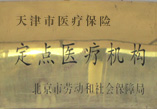 天津市医疗保险
定点医疗机构
北京市劳动和社会保障局